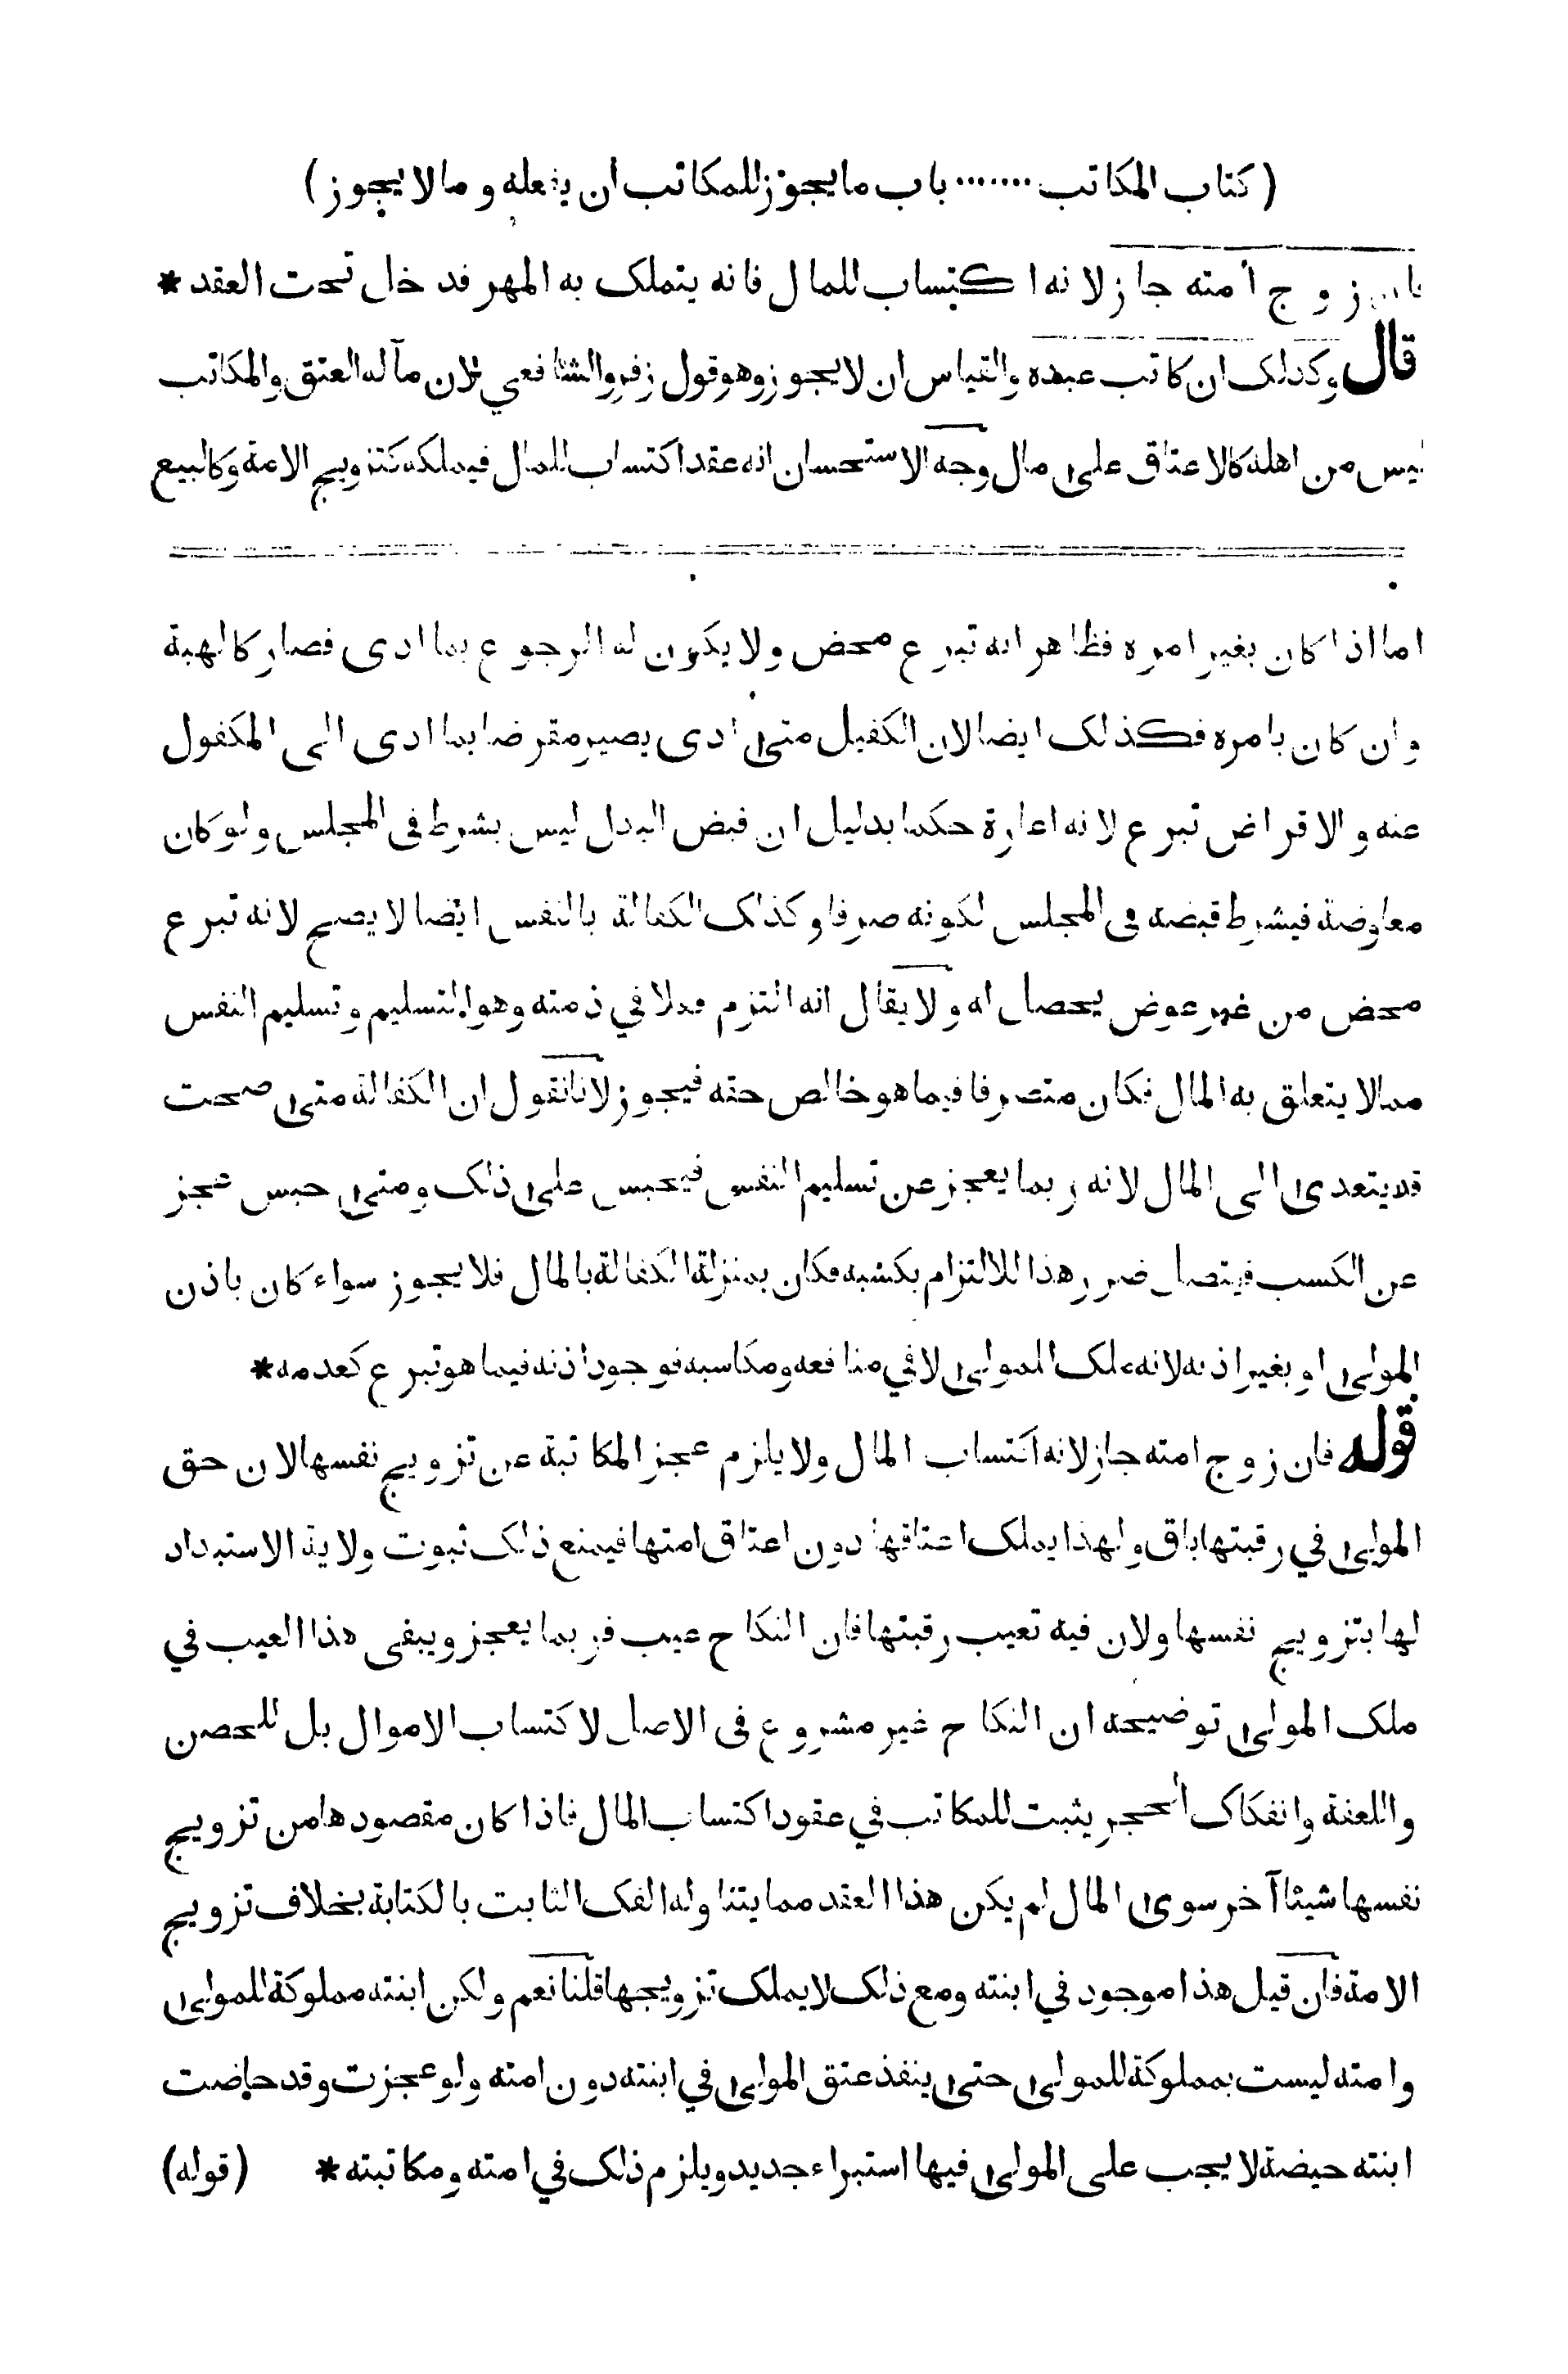 ( كتاب المكاتب ....... باب ما يجوز للمكاتب ان يفعله و ما لا يجوز )
فان زوج أمته جاز لانه اكتساب للمال فانه يتملك به المهر فدخل تحت العقد *
قال وكذلك ان كاتب عبده والقياس ان لا يجوز وهو قول زفر والشافعي لان مآله العتق والمكاتب
ليس من اهله كالاعتاق على مال وجه الاستحسان انه عقد اكتساب للمال فيملكه كتزويج الامة وكالبيع
اما اذا كان بغير امره فظاهر انه تبرع محض ولا يكون له الرجوع بما ادى فصار كالهبة
وان كان بامره فكذلك ايضا لان الكفيل متى ادى يصير مقرضا بما ادى الى المكفول
عنه والاقراض تبرع لانه اعارة حكما بدليل ان قبض البدل ليس بشرط في المجلس ولو كان
معاوضة فيشرط قبضه في المجلس لكونه صرفا وكذلك الكفالة بالنفس ايضا لا يصح لانه تبرع
محض من غير عوض يحصل له ولا يقال انه التزم فعلا في ذمته وهو التسليم وتسليم النفس
مما لا يتعلق به المال فكان متصرفا فيما هو خالص حقه فيجوز لانا نقول ان الكفالة متى صحت
قد يتعدى الى المال لانه ربما يعجز عن تسليم النفس فيحبس على ذلك ومتى حبس عجز
عن الكسب فيتصل ضرر هذا الالتزام بكسبه فكان بمنزلة الكفالة بالمال فلا يجوز سواء كان باذن
المولى او بغير اذنه لانه ملك المولى لا في منافعه ومكاسبه فوجود اذنه فيما هو تبرع كعدمه *
قوله فان زوج امته جاز لانه اكتساب المال ولا يلزم عجز المكاتبة عن تزويج نفسها لان حق
المولى في رقبتها باق ولهذا يملك اعتاقها دون اعتاق امتها فيمنع ذلك ثبوت ولاية الاستبداد
لها بتزويج نفسها ولان فيه تعيب رقبتها فان النكاح عيب فربما يعجز ويبقى هذا العيب في
ملك المولى توضيحه ان النكاح غير مشروع في الاصل لاكتساب الاموال بل للحصن
واللعفة وانفكاك الحجر يثبت للمكاتب في عقود اكتساب المال فاذا كان مقصودها من تزويج
نفسها شيئا آخر سوى المال لم يكن هذا العقد مما يتناوله الفك الثابت بالكتابة بخلاف تزويج
الامة فان قيل هذا موجود في ابنته ومع ذلك لا يملك تزويجها قلنا نعم ولكن ابنته مملوكة للمولى
وامته ليست بمملوكة للمولى حتى ينفذ عتق المولى في ابنته دون امته ولو عجزت وقد حاضت
ابنته حيضة لا يجب على المولى فيها استبراء جديد ويلزم ذلك في امته ومكاتبته *
(قوله)